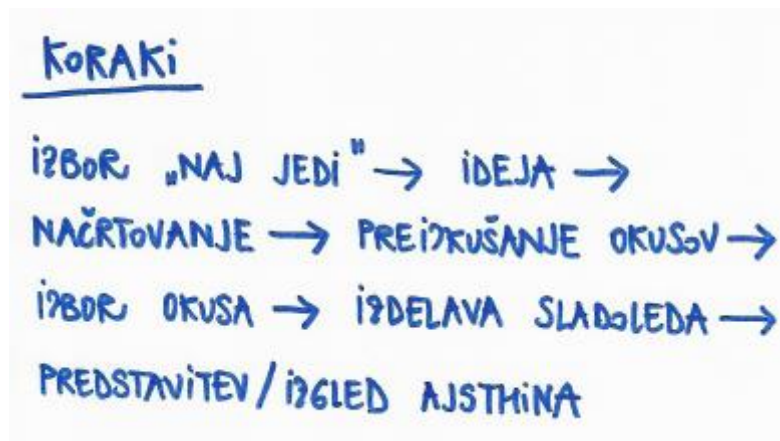 KORAKi
iZBOR „NAJ JEDi" → iDEJA →
NAČRTOVANJE → PREiZKUŠANJE OKUSOV →
iZBOR OKUSA → iZDELAVA SLADOLEDA →
PREDSTAVITEV / iZGLED AJSTHiNA